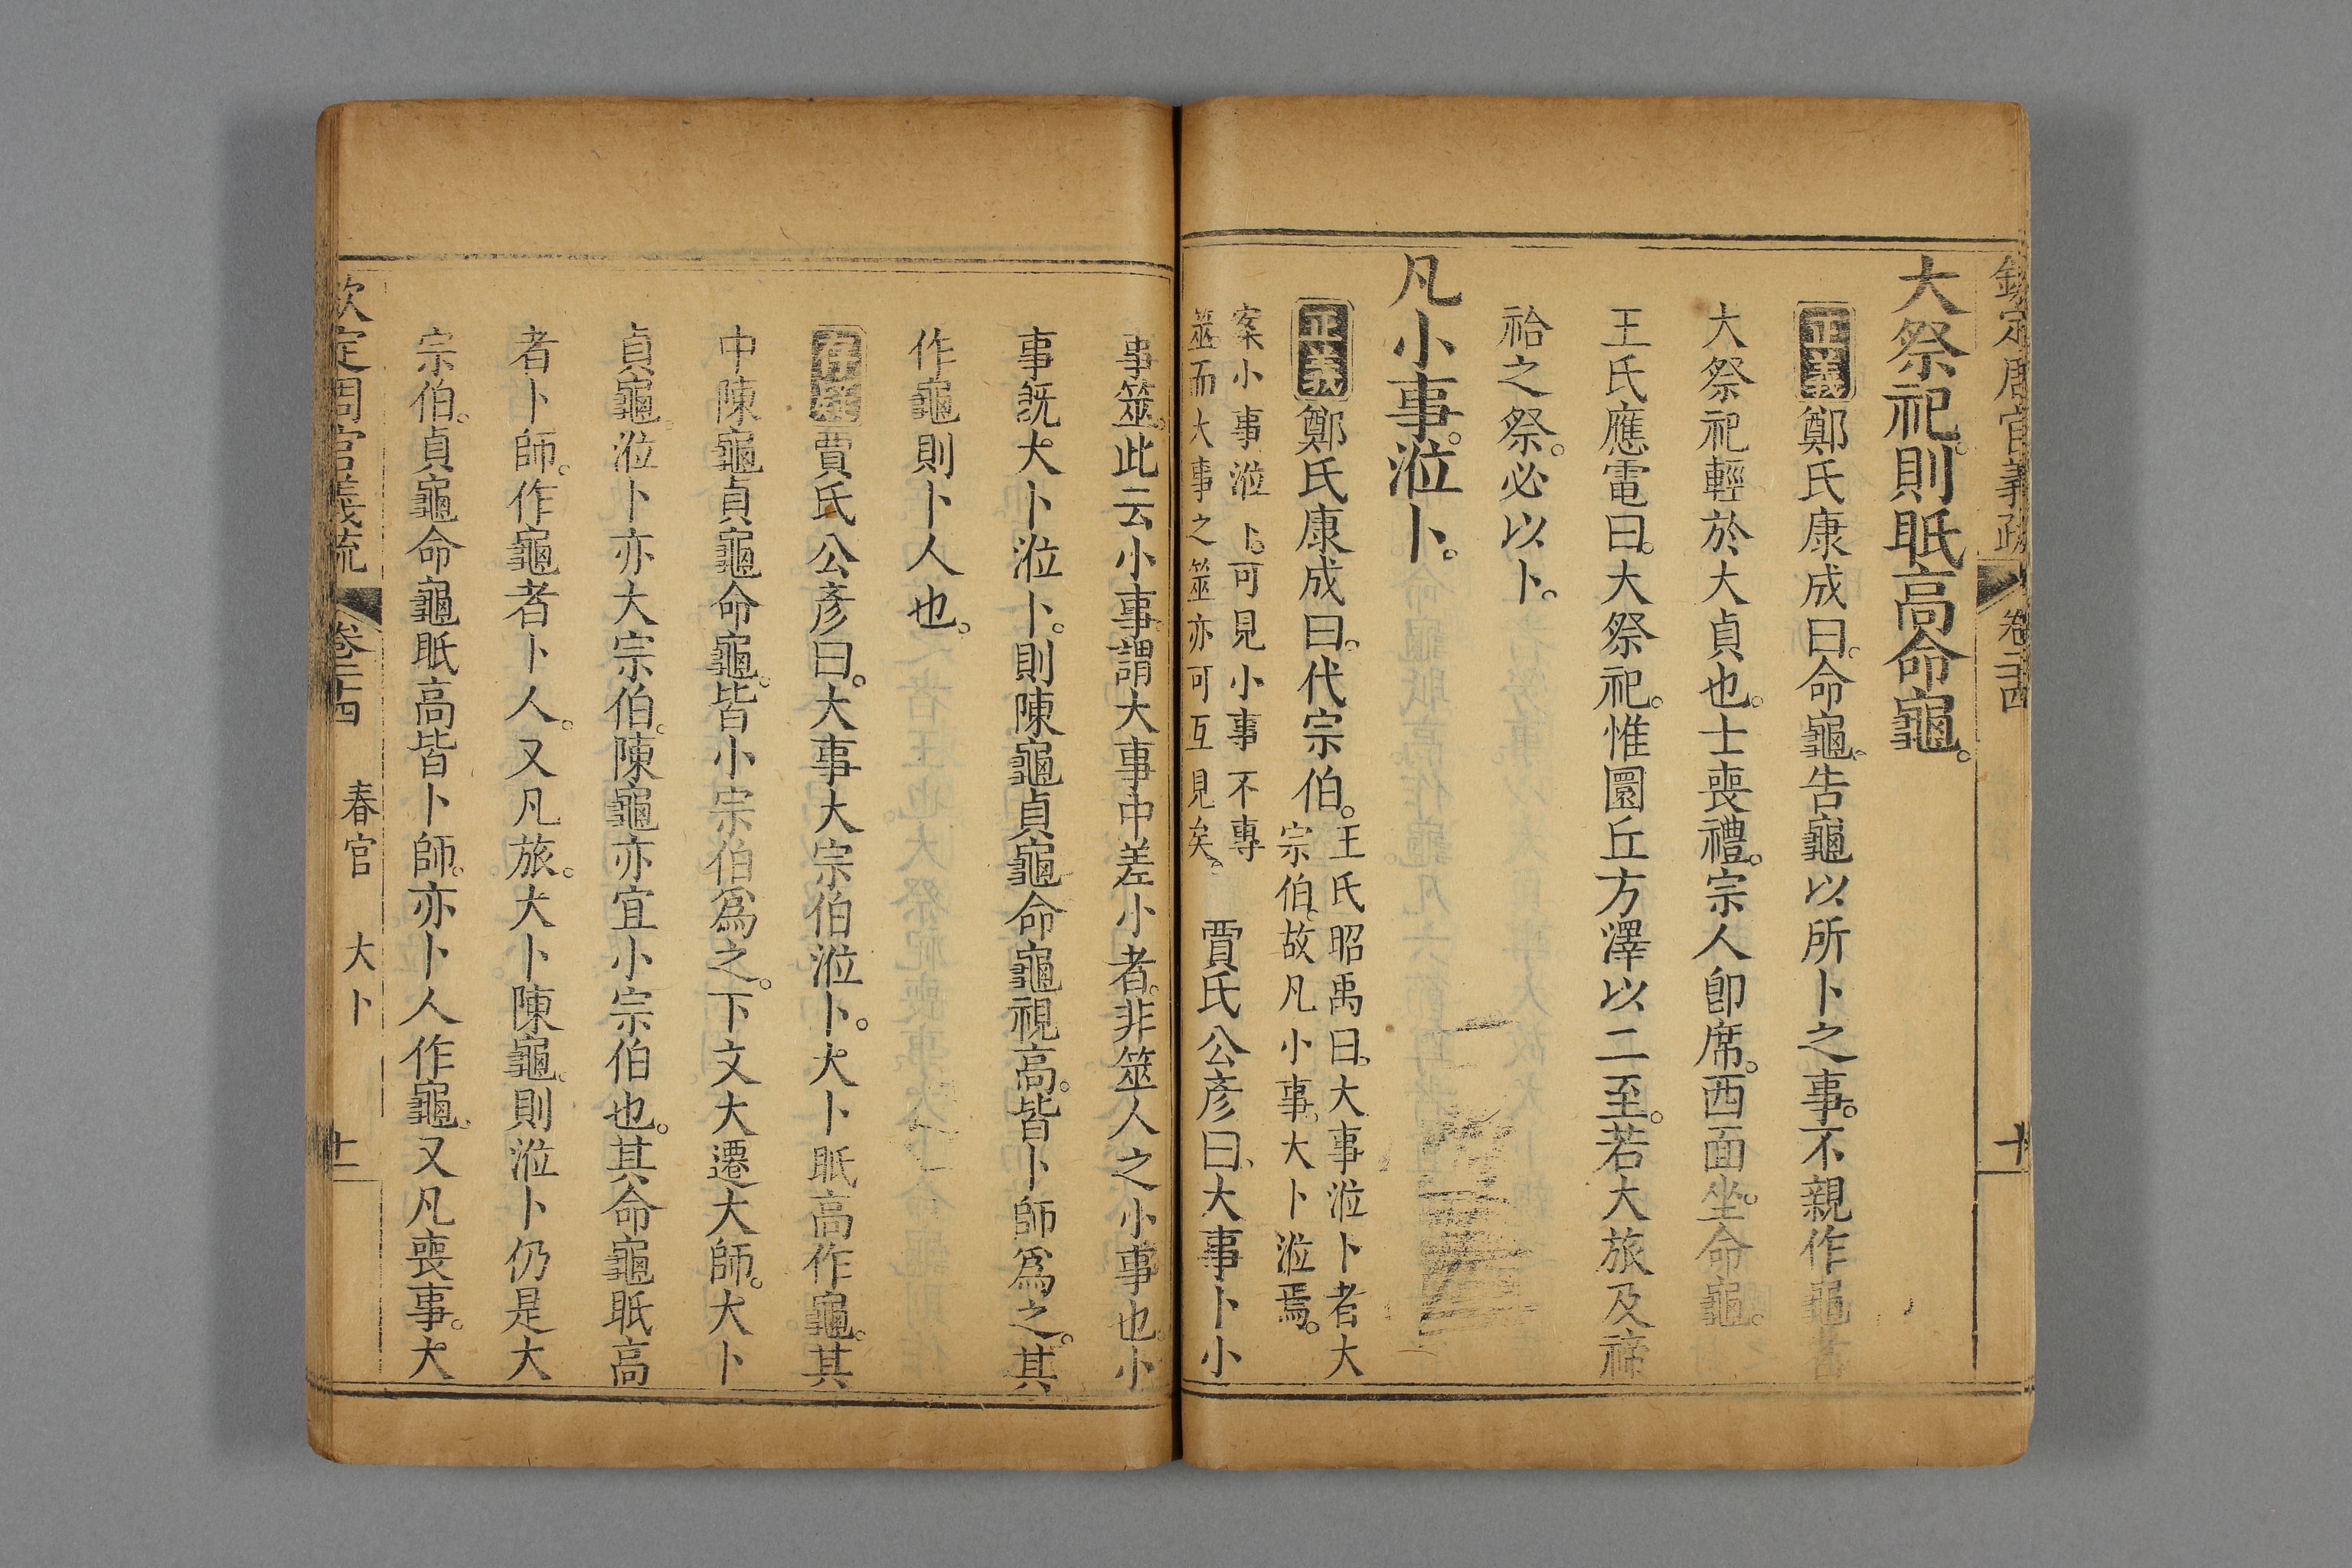 欽定周官義疏 卷二十四 十
大祭祀。則眡高命龜。
正義 鄭氏康成曰。命龜。告龜以所卜之事。不親作龜者
大祭祀輕於大貞也。士喪禮。宗人卽席。西面坐。命龜。
王氏應電曰。大祭祀。惟圜丘方澤以二至。若大旅及禘
祫之祭。必以卜。
凡小事。涖卜。
正義 鄭氏康成曰。代宗伯。
王氏昭禹曰。大事涖卜者大
宗伯。故凡小事。大卜涖焉。
案小事涖卜。可見小事不專
筮。而大事之筮亦可互見矣。
賈氏公彥曰、大事卜小
事筮。此云小事。謂大事中差小者。非筮人之小事也。小
事既大卜涖卜。則陳龜貞龜命龜視高。皆卜師爲之。其
作龜則卜人也。
賈氏公彥曰。大事大宗伯涖卜。大卜眡高作龜。其
中陳龜貞龜命龜。皆小宗伯爲之。下文大遷大師。大卜
貞龜。涖卜亦大宗伯。陳龜亦宜小宗伯也。其命龜眡高
者卜師。作龜者卜人。又凡旅。大卜陳龜。則涖卜仍是大
宗伯。貞龜命龜眡高皆卜師。亦卜人作龜。又凡喪事。大
欽定周官義疏 卷二十四 春官 大卜 十一